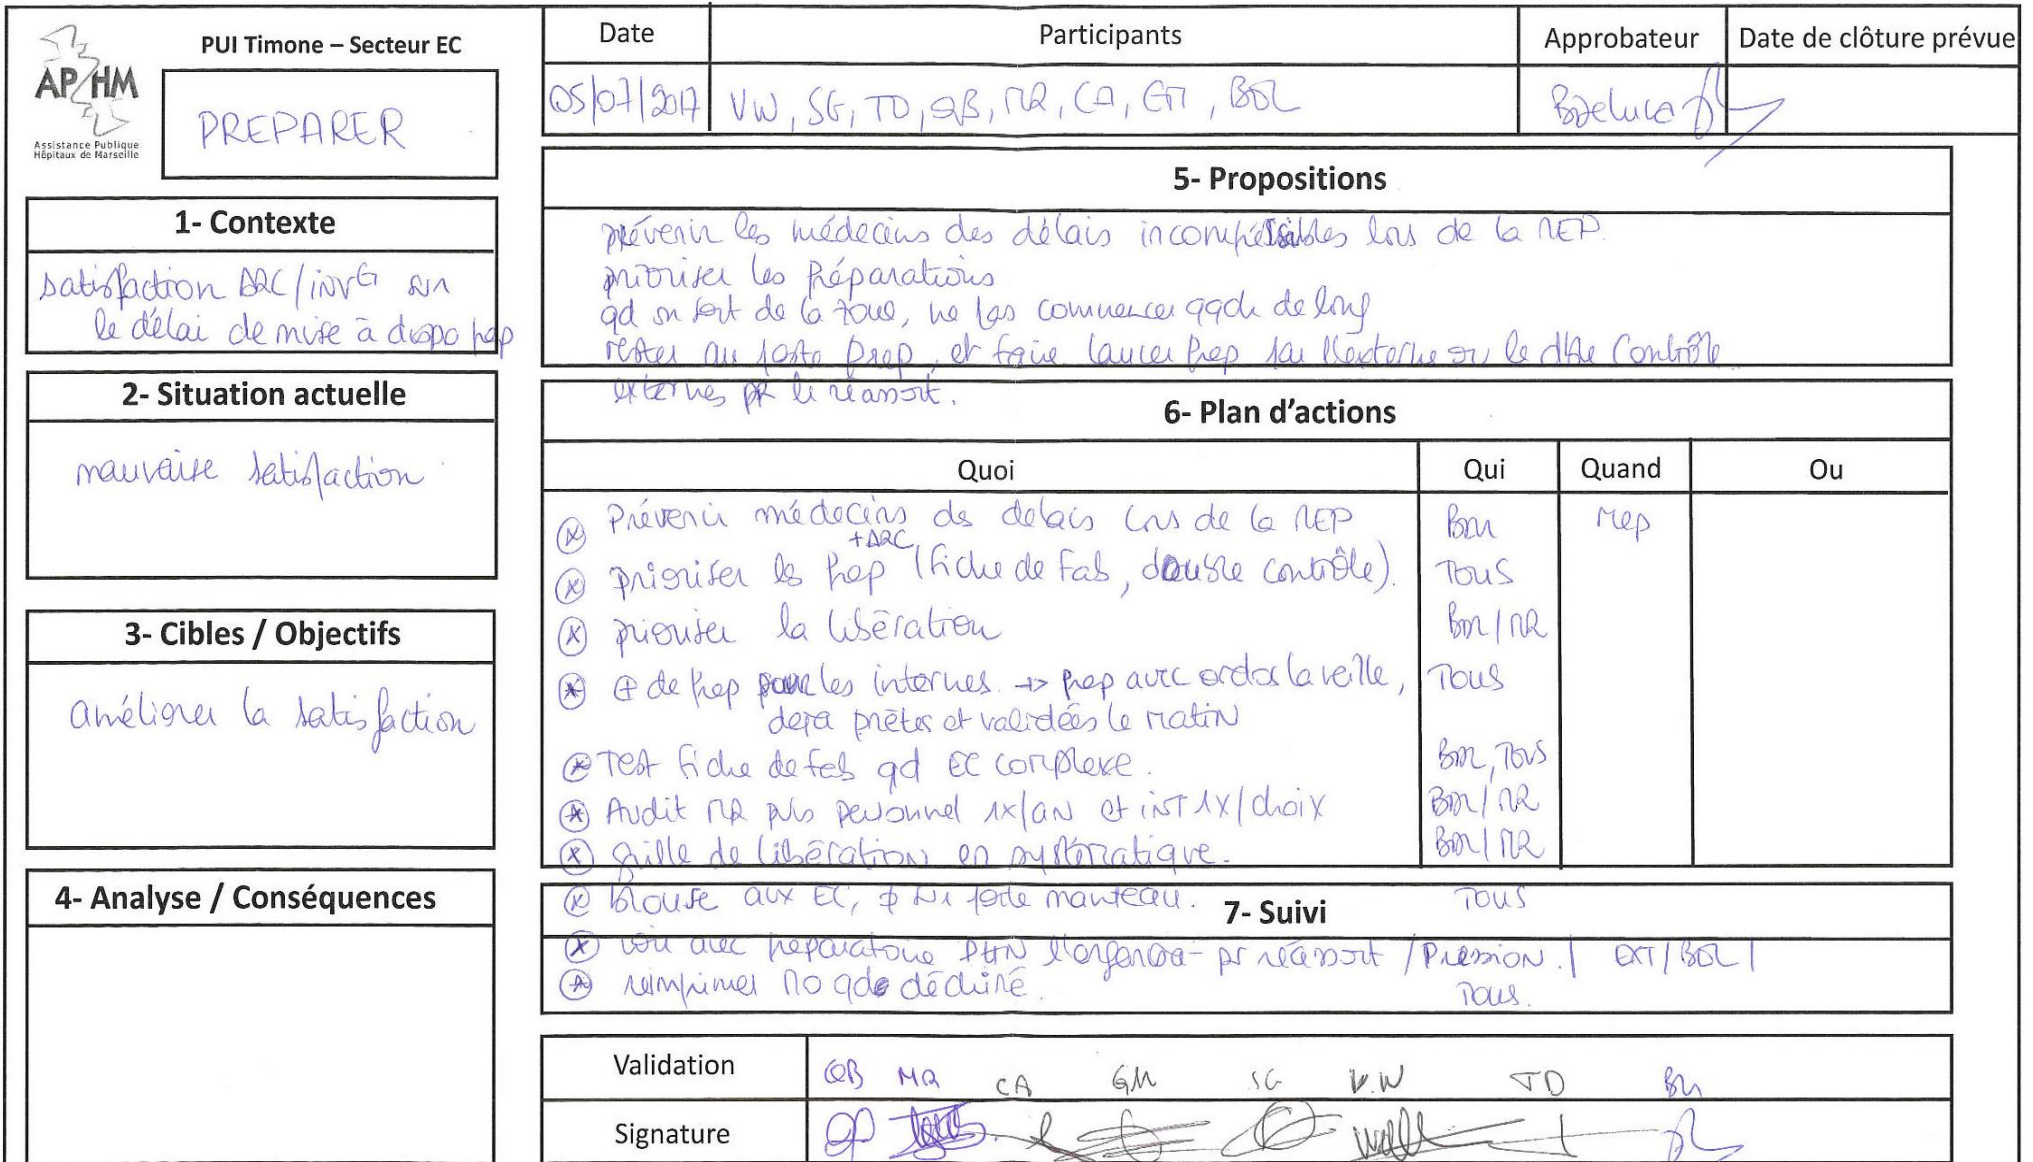 PUI Timone – Secteur EC
AP-HM
Assistance Publique
Hôpitaux de Marseille
PREPARER
Date
Participants
Approbateur
Date de clôture prévue
05/07/2017
VW, SG, TD, QB, MR, CA, GM, BDL
BDeluca
1- Contexte
satisfaction ARC/invG sur
le délai de mise à dispo prep
2- Situation actuelle
mauvaise satisfaction
3- Cibles / Objectifs
améliorer la satisfaction
4- Analyse / Conséquences
5- Propositions
prévenir les médecins des délais incompressibles lors de la MEP.
prioriser les préparations
qd on sort de la zone, ne pas commencer qqch de long
rester au poste prep, et faire lancer prep par l'externe ou le Contrôle
externes pr le réassort.
6- Plan d'actions
Quoi
Qui
Quand
Ou
Prévenir médecins ds delais lors de la MEP
BDL
Mep
+ARC
prioriser les prep (fiche de Fab, double contrôle).
TOUS
prioriser la libération
BDL/MR
+ de prep pour les internes → prep avec ordos la veille,
TOUS
deja prêtes et validées le matin
Test fiche de fab qd EC complexe.
BDL, TOUS
Audit MR pls personnel 1x/an et INT 1X/choix
BDL/MR
grille de libération en systématique.
BDL/MR
Blouse aux EC, sur porte manteau.
TOUS
7- Suivi
voir avec preparatoire pr réassort / Pression.
EXT/BDL
reimprimer no qd déchiré.
Tous.
Validation
QB MR CA GM SG V.W TD BDL
Signature